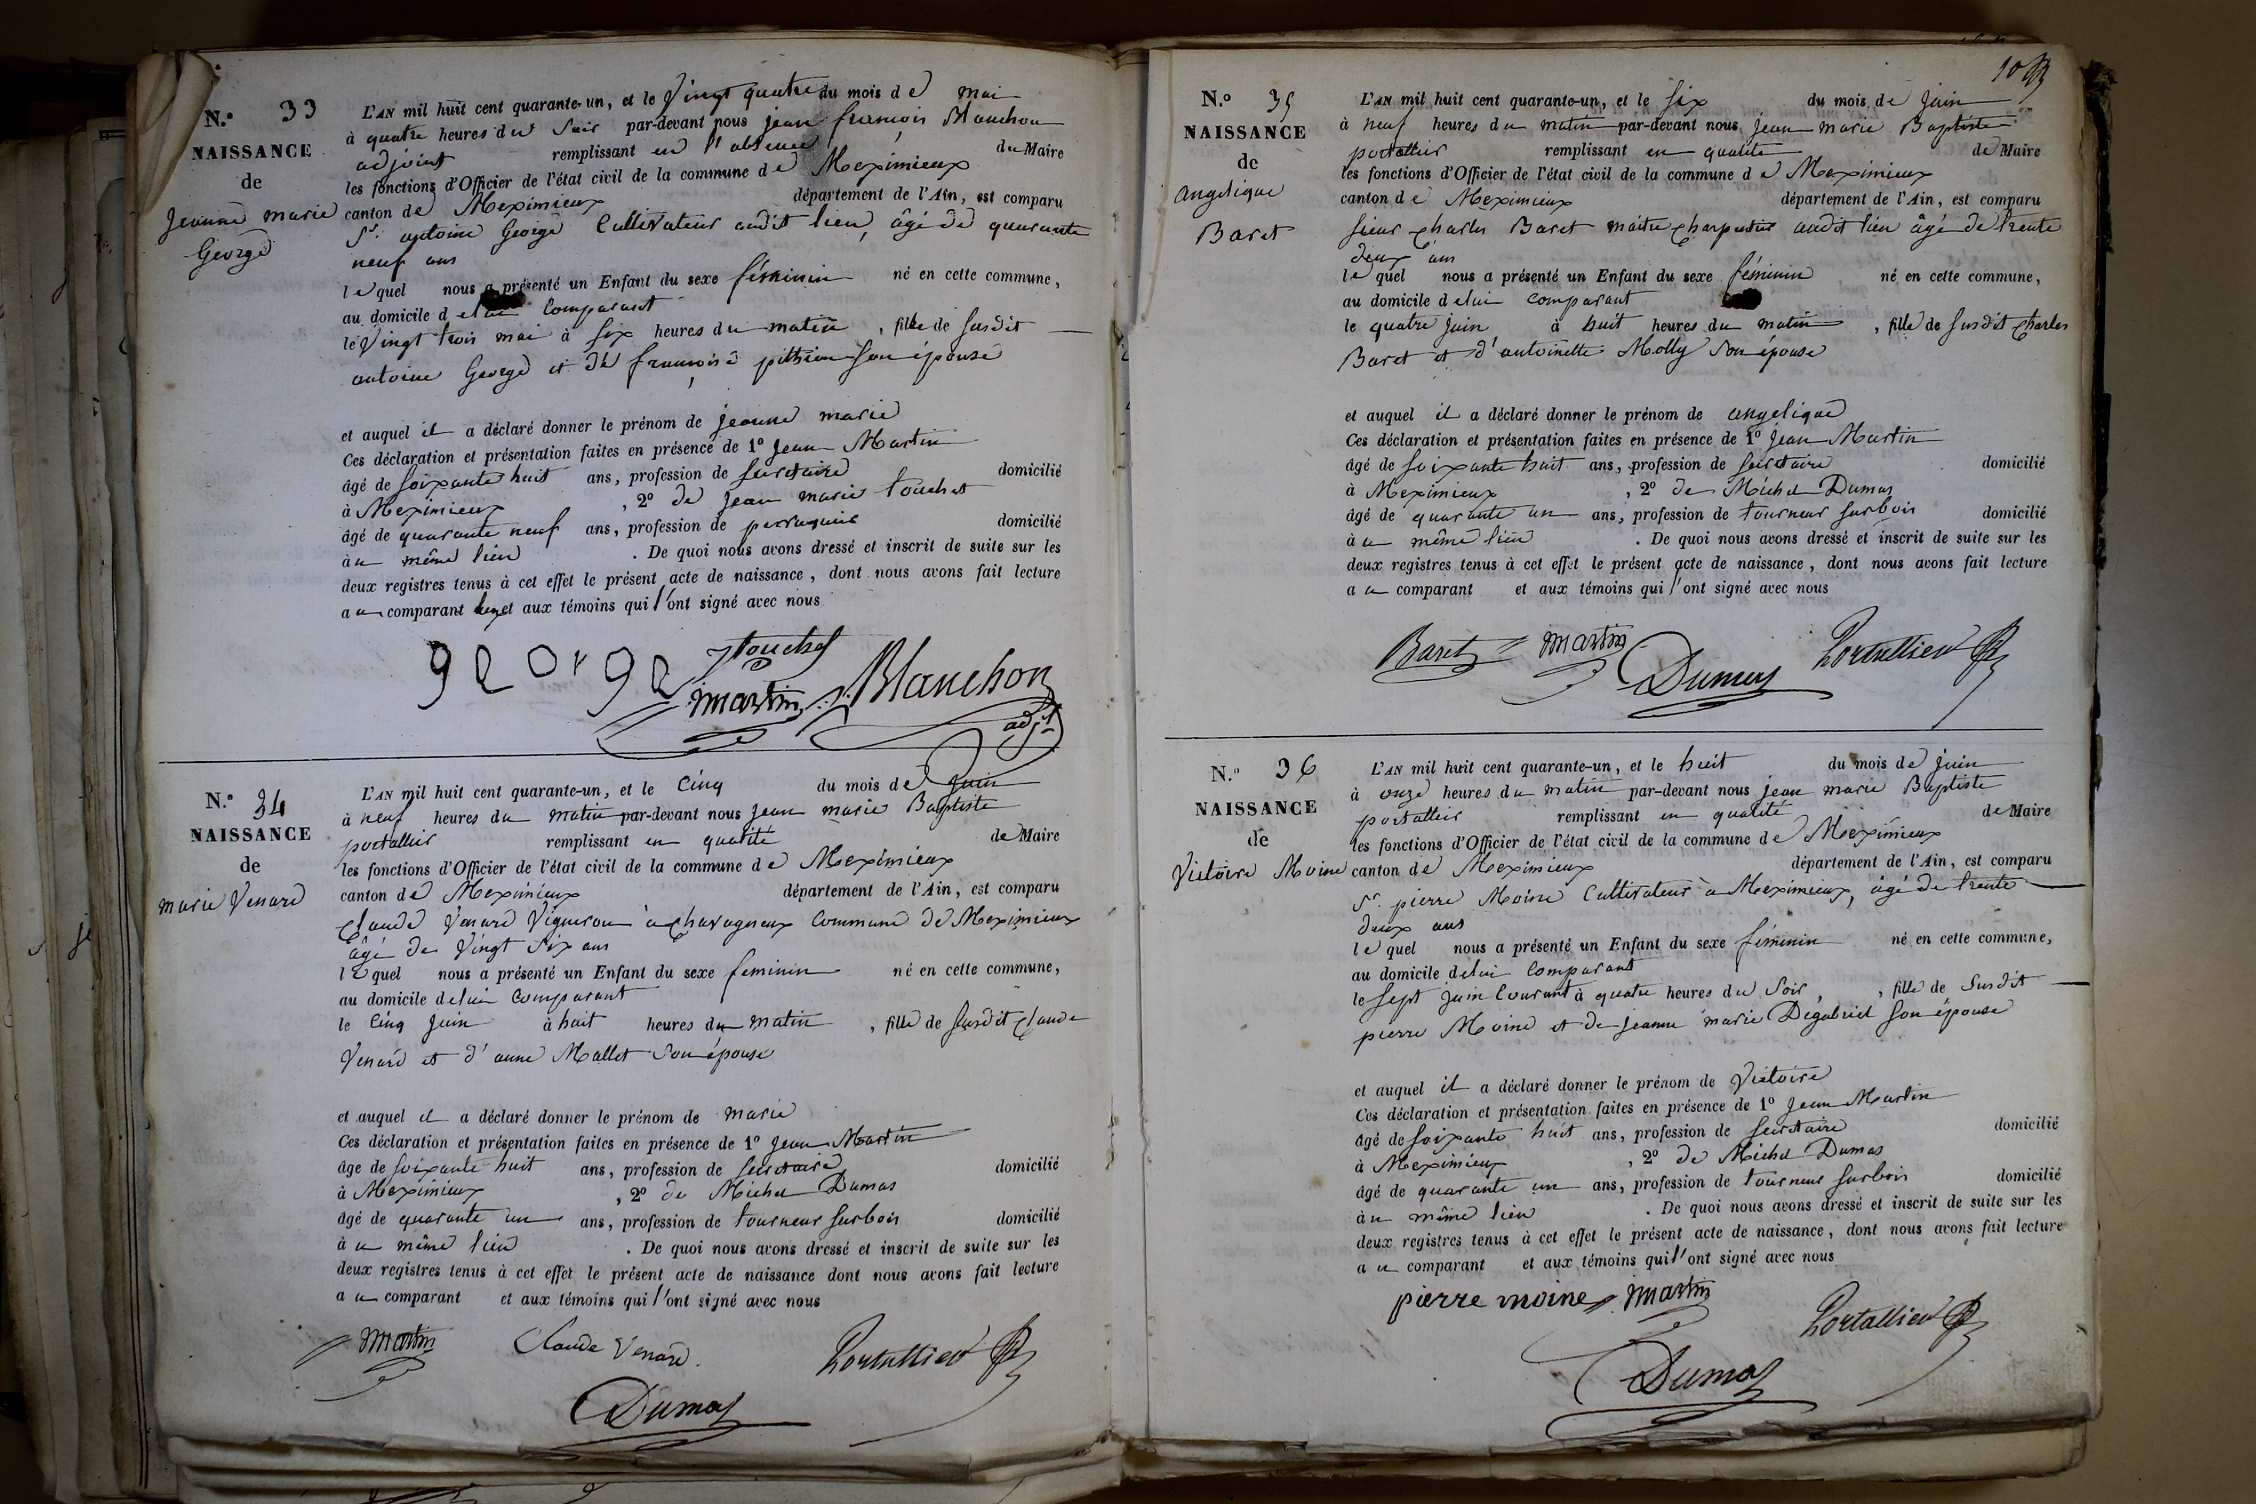 N.º 33
NAISSANCE
de
Jeanne marie
George
L'AN mil huit cent quarante-un, et le Vingt quatre du mois de mai
à quatre heures du Soir par-devant nous jean françois Blanchon
adjoint remplissant en l'absence du Maire
les fonctions d'Officier de l'état civil de la commune de Meximieux
canton de Meximieux département de l'Ain, est comparu
Sr. antoine George Cultivateur audit lieu, âgé de quarante
neuf ans
lequel nous a présenté un Enfant du sexe féminin né en cette commune,
au domicile de lui Comparant
le Vingt trois mai à six heures du matin, fille de Susdit
antoine George et de françoise son épouse
et auquel il a déclaré donner le prénom de jeanne marie
Ces déclaration et présentation faites en présence de 1º Jean Martin
âgé de soixante huit ans, profession de secretaire domicilié
à Meximieux, 2º de Jean marie touchet
âgé de quarante neuf ans, profession de perruquier domicilié
à u même lieu. De quoi nous avons dressé et inscrit de suite sur les
deux registres tenus à cet effet le présent acte de naissance, dont nous avons fait lecture
a u comparant et aux témoins qui l'ont signé avec nous
george touchet
martin Blanchon
adjt
N.º 34
NAISSANCE
de
marie Venard
L'AN mil huit cent quarante-un, et le Cinq du mois de Juin
à neuf heures du matin par-devant nous Jean marie Baptiste
portallier remplissant en qualité de Maire
les fonctions d'Officier de l'état civil de la commune de Meximieux
canton de Meximieux département de l'Ain, est comparu
Claude Venard Vigneron à Chavagneux Commune de Meximieux
âgé de Vingt Six ans
lequel nous a présenté un Enfant du sexe feminin né en cette commune,
au domicile de lui Comparant
le Cinq Juin à huit heures du matin, fille de Susdit Claude
Venard et d'anne Mallet Son épouse
et auquel il a déclaré donner le prénom de marie
Ces déclaration et présentation faites en présence de 1º Jean Martin
âge de soixante huit ans, profession de secretaire domicilié
à Meximieux, 2º de Michel Dumas
âgé de quarante un ans, profession de tourneur sur bois domicilié
à u même lieu. De quoi nous avons dressé et inscrit de suite sur les
deux registres tenus à cet effet le présent acte de naissance dont nous avons fait lecture
a u comparant et aux témoins qui l'ont signé avec nous
martin Claude Venard Portallier
Dumas
N.º 35
NAISSANCE
de
angelique
Baret
L'AN mil huit cent quarante-un, et le six du mois de juin
à neuf heures du matin par-devant nous jean marie Baptiste
portallier remplissant en qualité de Maire
les fonctions d'Officier de l'état civil de la commune de Meximieux
canton de Meximieux département de l'Ain, est comparu
sieur Charles Baret maitre Charpentier audit lieu âgé de trente
deux ans
lequel nous a présenté un Enfant du sexe féminin né en cette commune,
au domicile de lui comparant
le quatre juin à huit heures du matin, fille de susdit Charles
Baret et d'antoinette Molly Son épouse
et auquel il a déclaré donner le prénom de angelique
Ces déclaration et présentation faites en présence de 1º Jean Martin
âgé de soixante huit ans, profession de secretaire domicilié
à Meximieux, 2º de Michel Dumas
âgé de quarante un ans, profession de tourneur sur bois domicilié
à u même lieu. De quoi nous avons dressé et inscrit de suite sur les
deux registres tenus à cet effet le présent acte de naissance, dont nous avons fait lecture
a u comparant et aux témoins qui l'ont signé avec nous
Baret martin Dumas Portallier
N.º 36
NAISSANCE
de
Victoire Moine
L'AN mil huit cent quarante-un, et le huit du mois de juin
à onze heures du matin par-devant nous jean marie Baptiste
portallier remplissant en qualité de Maire
les fonctions d'Officier de l'état civil de la commune de Meximieux
canton de Meximieux département de l'Ain, est comparu
Sr. pierre Moine Cultivateur à Meximieux, âgé de trente
deux ans
lequel nous a présenté un Enfant du sexe féminin né en cette commune,
au domicile de lui Comparant
le sept juin Courant à quatre heures du Soir, fille de Susdit
pierre Moine et de jeanne marie Degabriel son épouse
et auquel il a déclaré donner le prénom de Victoire
Ces déclaration et présentation faites en présence de 1º Jean Martin
âgé de soixante huit ans, profession de secretaire domicilié
à Meximieux, 2º de Michel Dumas
âgé de quarante un ans, profession de tourneur sur bois domicilié
à u même lieu. De quoi nous avons dressé et inscrit de suite sur les
deux registres tenus à cet effet le présent acte de naissance, dont nous avons fait lecture
a u comparant et aux témoins qui l'ont signé avec nous
pierre moine martin Portallier
Dumas